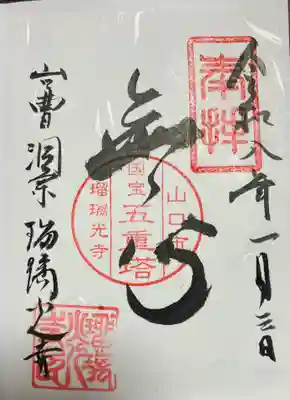 令和八年一月三日
奉拝
無心
山口市
国宝
五重塔
瑠璃光寺
曹洞宗 瑠璃光寺